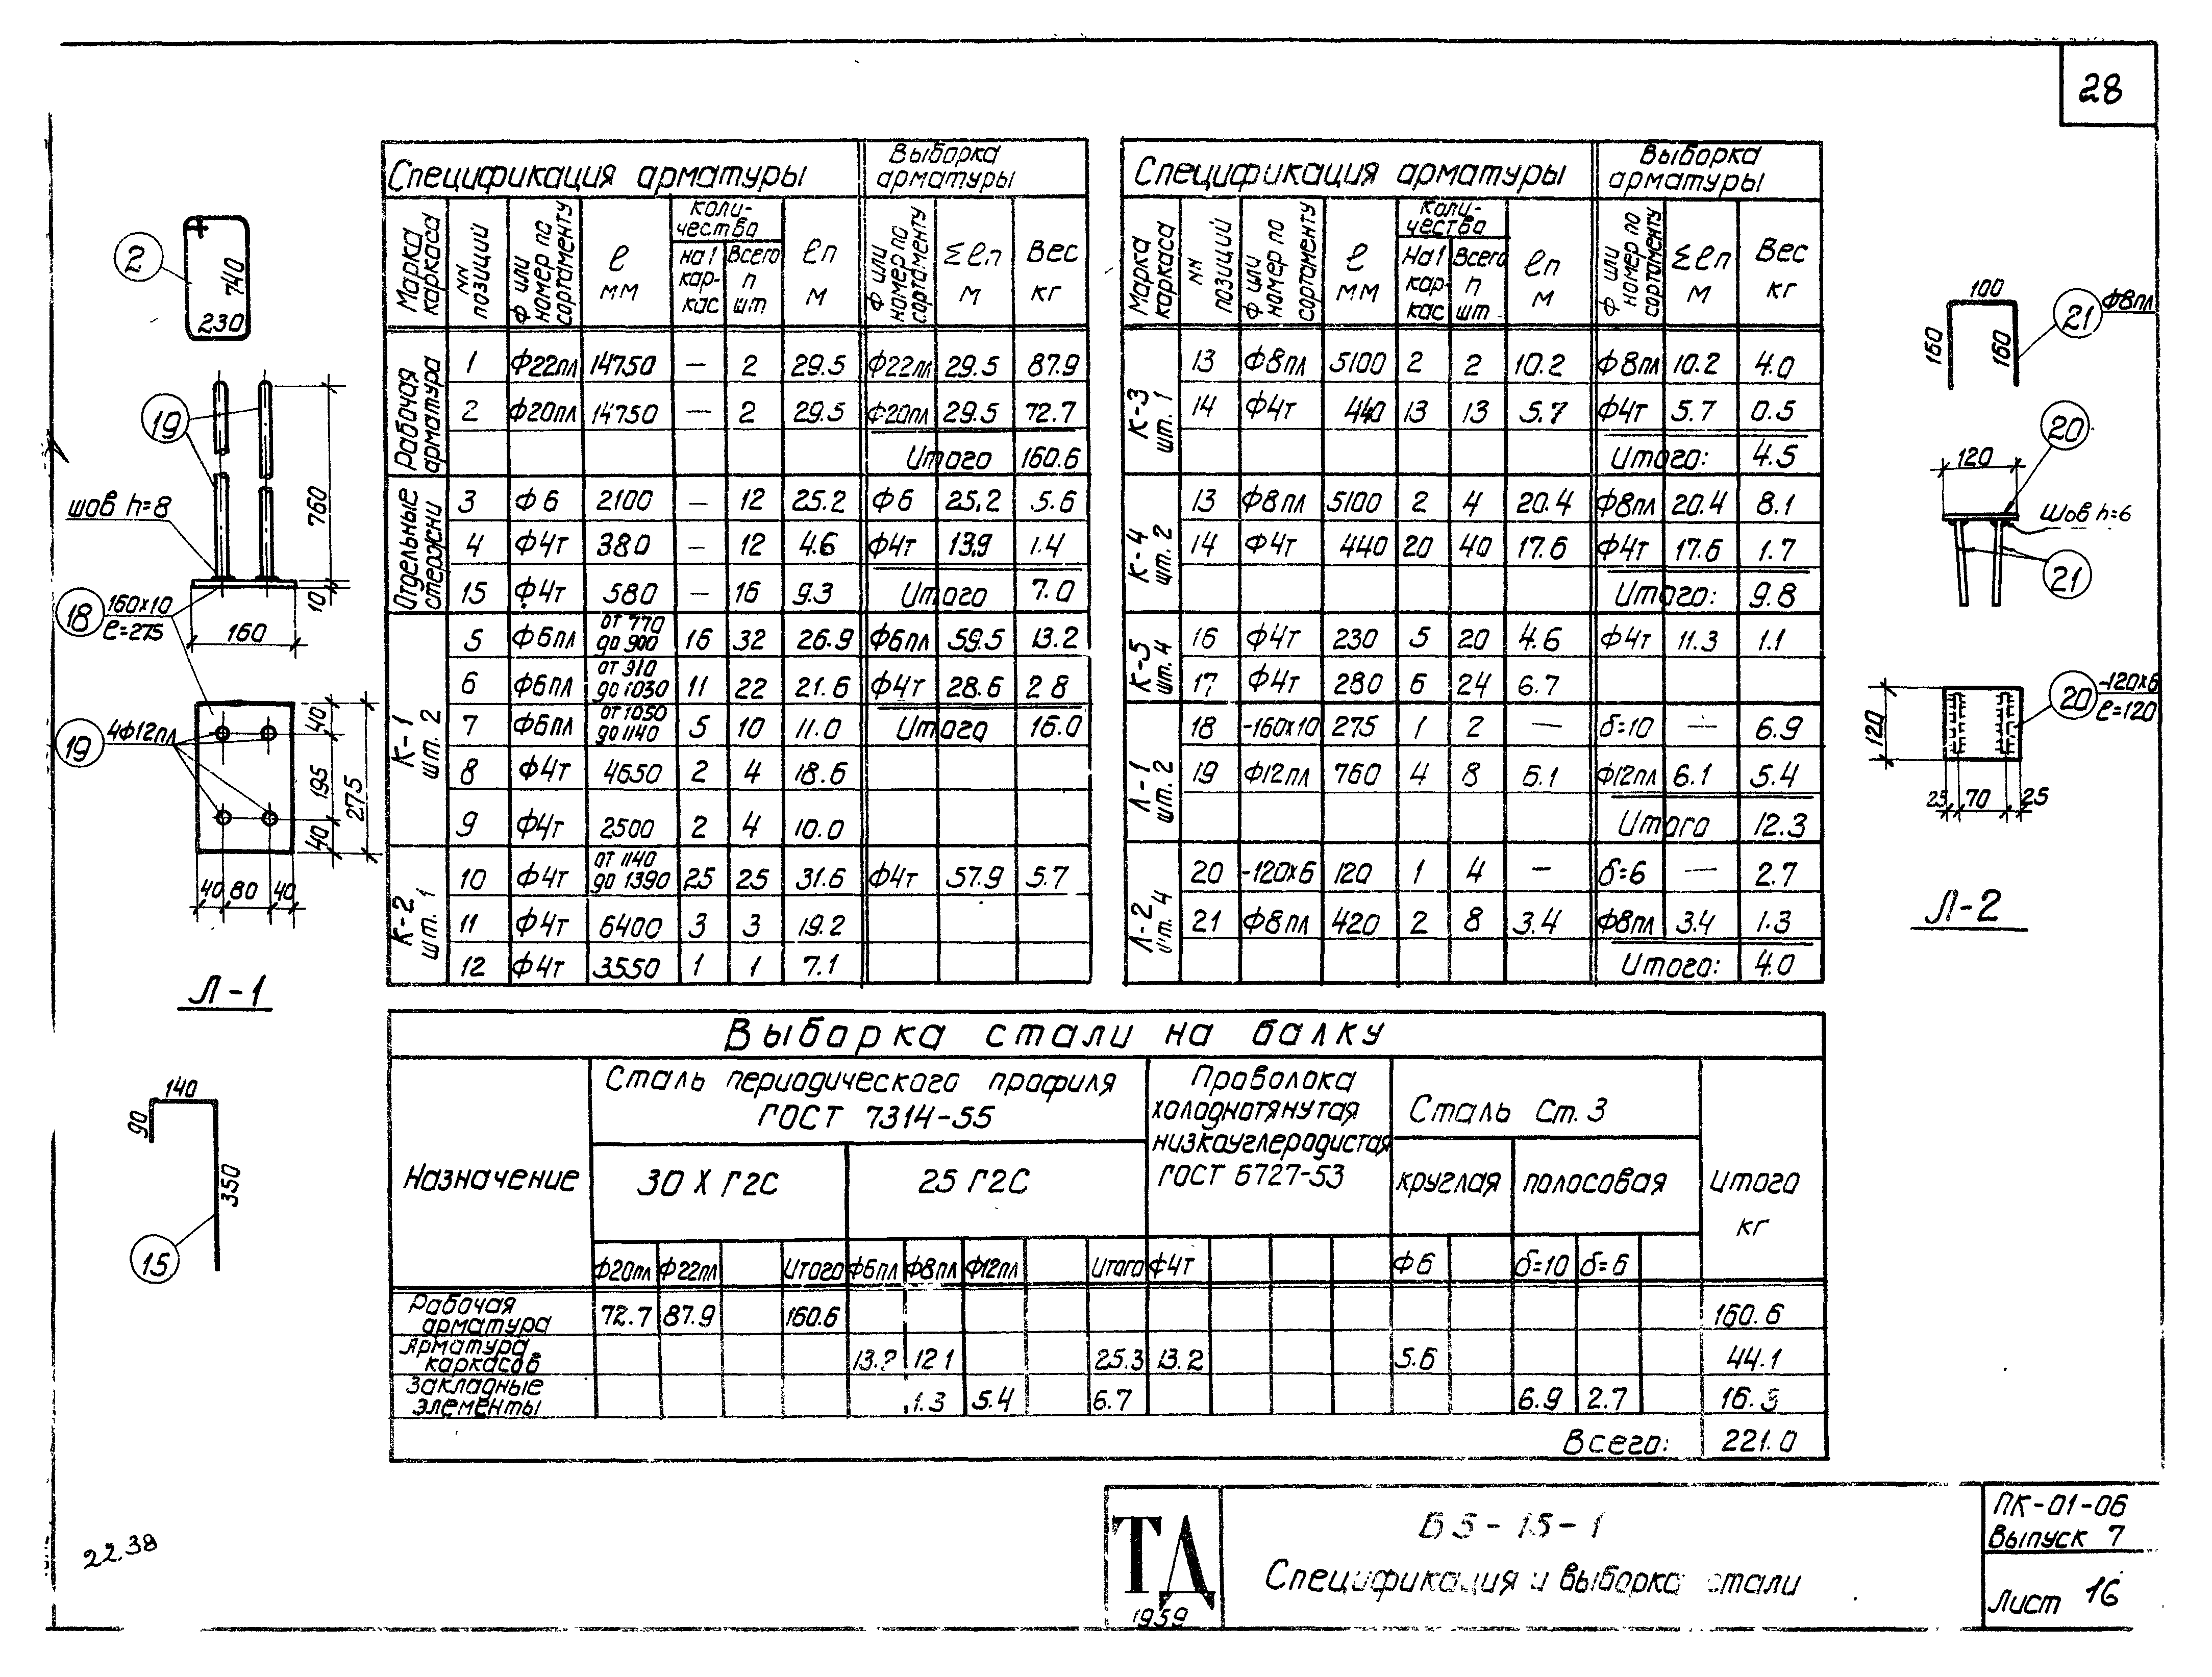 28
Спецификация арматуры
Выборка арматуры
Марка каркаса
NN позиций
Ф или номер по сортаменту
ℓ мм
Количество
на 1 каркас
Всего п шт
ℓп м
Ф или номер по сортаменту
Σℓп м
Вес кг
Рабочая арматура
1 Ф22пл 14750 — 2 29.5 Ф22пл 29.5 87.9
2 Ф20пл 14750 — 2 29.5 Ф20пл 29.5 72.7
Итого 160.6
Отдельные стержни
3 Ф6 2100 — 12 25.2 Ф6 25.2 5.6
4 Ф4т 380 — 12 4.6 Ф4т 13.9 1.4
15 Ф4т 580 — 16 9.3 Итого 7.0
К-1 шт. 2
5 Ф6пл от 770 до 900 16 32 26.9 Ф6пл 59.5 13.2
6 Ф6пл от 910 до 1030 11 22 21.6 Ф4т 28.6 2 8
7 Ф6пл от 1050 до 1140 5 10 11.0 Итого 16.0
8 Ф4т 4650 2 4 18.6
9 Ф4т 2500 2 4 10.0
К-2 шт. 1
10 Ф4т от 1140 до 1390 25 25 31.6 Ф4т 57.9 5.7
11 Ф4т 6400 3 3 19.2
12 Ф4т 3550 1 1 7.1
Спецификация арматуры
Выборка арматуры
Марка каркаса
NN позиций
Ф или номер по сортаменту
ℓ мм
Количества
На 1 каркас
Всего п шт
ℓп м
Ф или номер по сортаменту
Σℓп м
Вес кг
К-3 шт. 1
13 Ф8пл 5100 2 2 10.2 Ф8пл 10.2 4.0
14 Ф4т 440 13 13 5.7 Ф4т 5.7 0.5
Итого: 4.5
К-4 шт. 2
13 Ф8пл 5100 2 4 20.4 Ф8пл 20.4 8.1
14 Ф4т 440 20 40 17.6 Ф4т 17.6 1.7
Итого: 9.8
К-5 шт. 4
16 Ф4т 230 5 20 4.6 Ф4т 11.3 1.1
17 Ф4т 280 6 24 6.7
Л-1 шт. 2
18 -160х10 275 1 2 — δ=10 — 6.9
19 Ф12пл 760 4 8 6.1 Ф12пл 6.1 5.4
Итого 12.3
Л-2 шт. 4
20 -120х6 120 1 4 — δ=6 — 2.7
21 Ф8пл 420 2 8 3.4 Ф8пл 3.4 1.3
Итого: 4.0
Выборка стали на балку
Назначение
Сталь периодического профиля
ГОСТ 7314-55
30 Х Г2С
25 Г2С
Проволока
холоднотянутая
низкоуглеродистая
ГОСТ 6727-53
Сталь Ст. 3
круглая
полосовая
Итого кг
Ф20пл Ф22пл Итого Ф6пл Ф8пл Ф12пл Итого Ф4т Ф6 δ=10 δ=6
Рабочая арматура 72.7 87.9 160.6 160.6
Арматура каркасов 13.2 12 1 25.3 13.2 5.6 44.1
Закладные элементы 1.3 5.4 6.7 6.9 2.7 16.3
Всего: 221.0
2
740
230
19
шов h=8
760
10
18
160х10
ℓ=275
160
19
4Ф12пл
40
195
40
275
40 80 40
Л-1
140
90
350
15
100
150
160
21
Ф8пл
20
120
Шов h=6
21
120
20
-120х6
ℓ=120
25 70 25
Л-2
22.38
ТД
1959
Б5-15-1
Спецификация и выборка стали
ПК-01-06
Выпуск 7
Лист 16